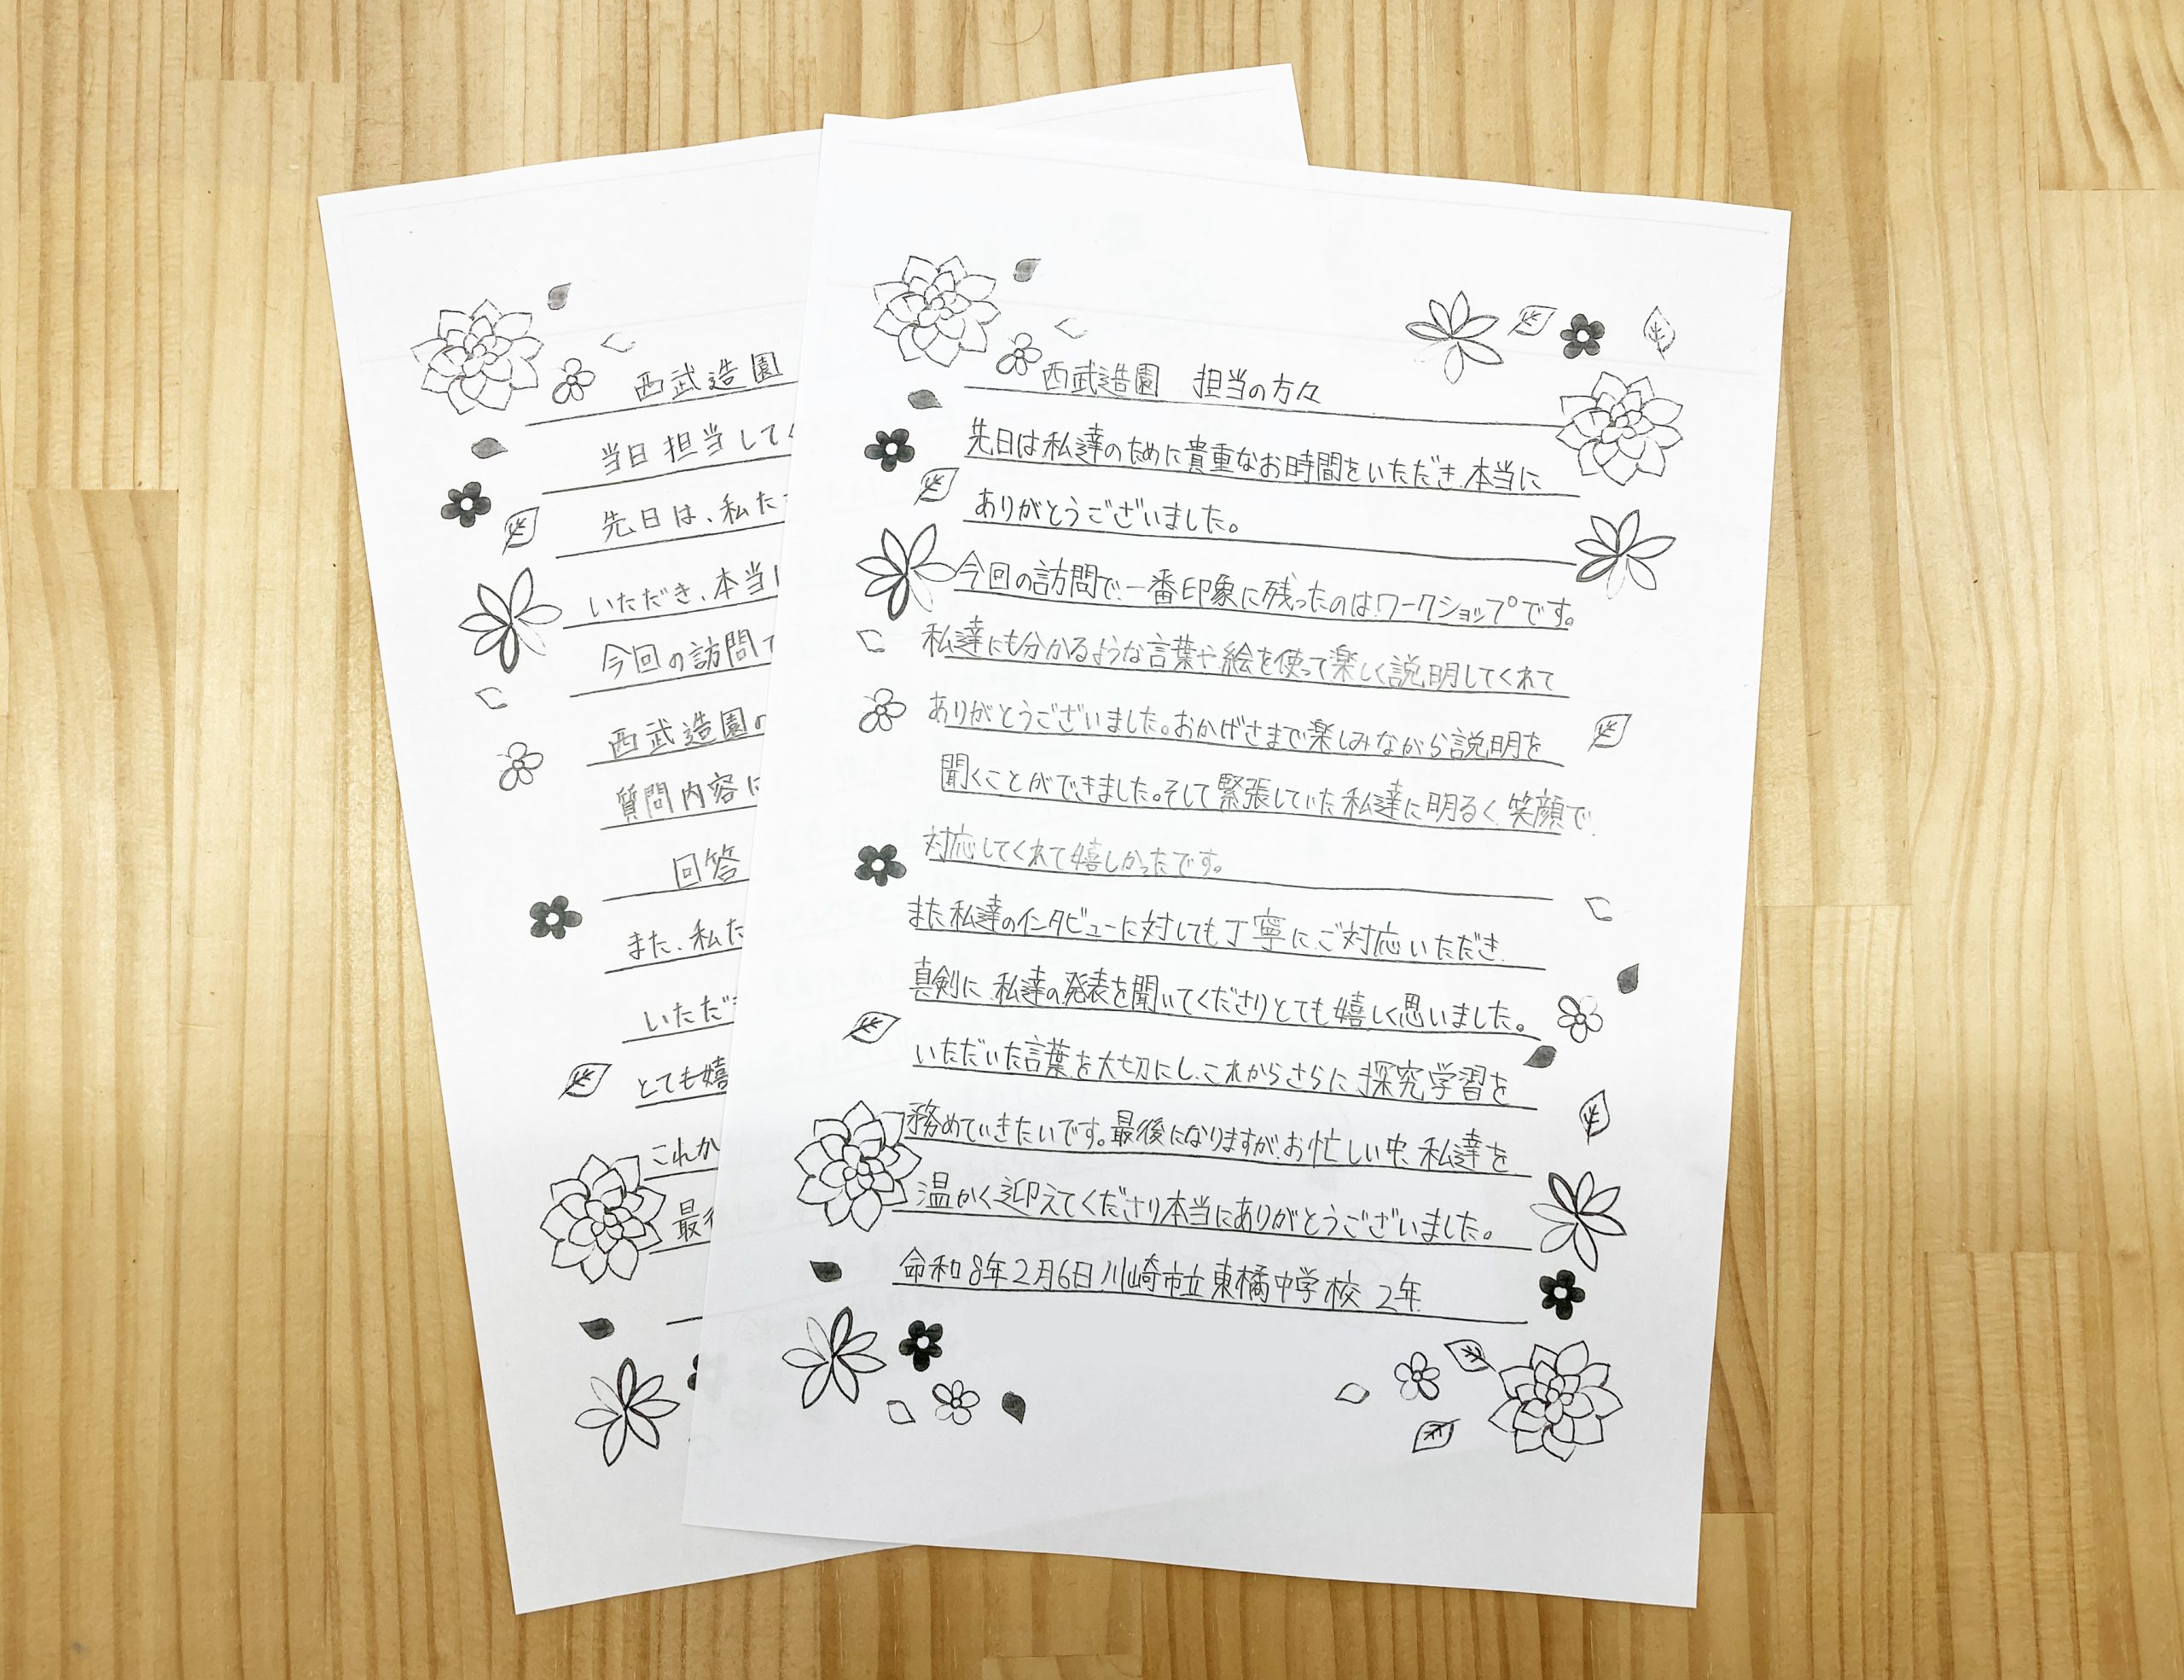 西武造園
当日担当して
先日は、私た
いただき、本当
今回の訪問で
西武造園の
質問内容に
回答
また、私た
いただ
とても嬉
これか
最
西武造園 担当の方々
先日は私達のために貴重なお時間をいただき本当に
ありがとうございました。
今回の訪問で一番印象に残ったのはワークショップです。
私達にも分かるような言葉や絵を使って楽しく説明してくれて
ありがとうございました。おかげさまで楽しみながら説明を
聞くことができました。そして緊張していた私達に明るく笑顔で
対応してくれて嬉しかったです。
また私達のインタビューに対しても丁寧にご対応いただき
真剣に私達の発表を聞いてくださりとても嬉しく思いました。
いただいた言葉を大切にし、これからさらに探究学習を
務めていきたいです。最後になりますがお忙しい中、私達を
温かく迎えてくださり本当にありがとうございました。
令和8年2月6日川崎市立東橘中学校 2年